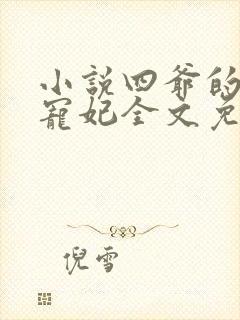 小說四爺的
寵妃全文免
倪雪